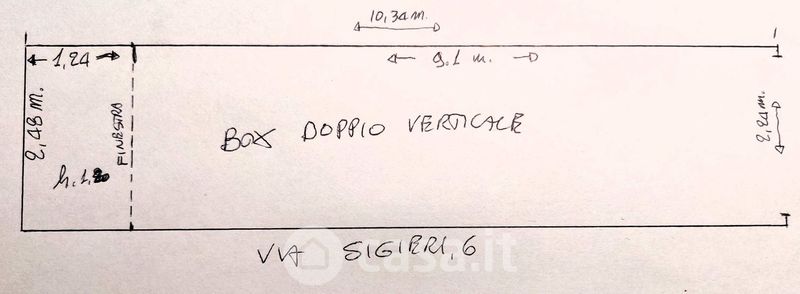 10,34 m.
1,24
9.1 m.
2,48 m.
FINESTRA
BOX DOPPIO VERTICALE
2,24 m.
VIA SIGIERI, 6
casa.it